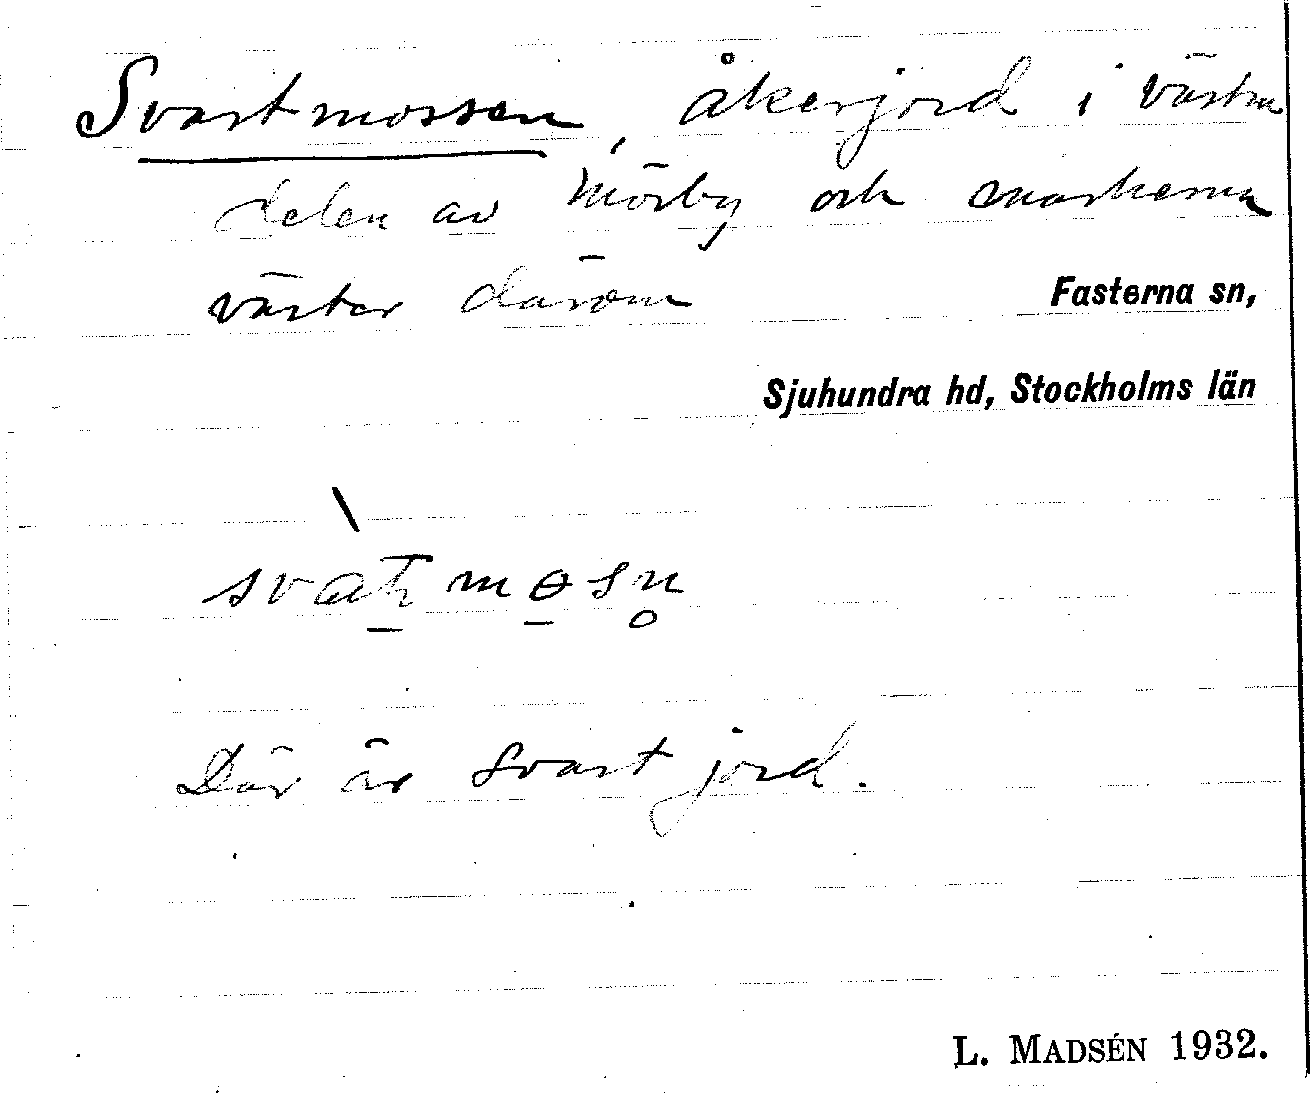 Svartmossen, åkerjord i västra
delen av Mörby och markerna
väster därom
Fasterna sn,
Sjuhundra hd, Stockholms län
Där är svart jord.
L. MADSÉN 1932.